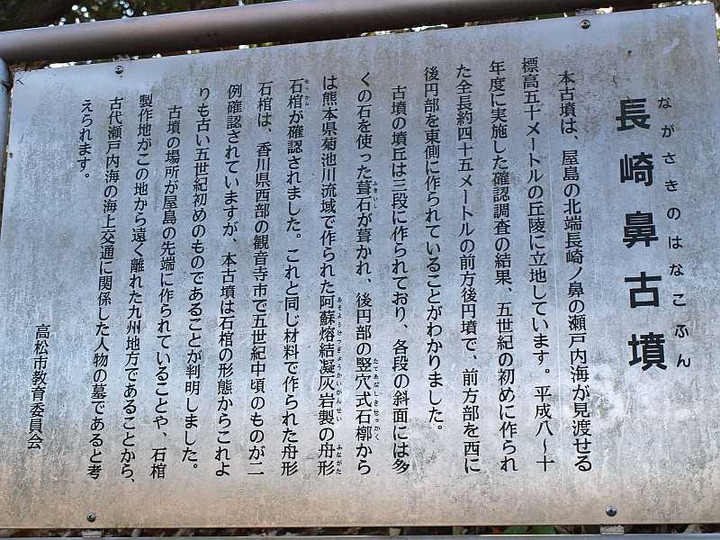 ながさきのはなこふん
長崎鼻古墳
本古墳は、屋島の北端長崎ノ鼻の瀬戸内海が見渡せる
標高五十メートルの丘陵に立地しています。平成八〜十
年度に実施した確認調査の結果、五世紀の初めに作られ
た全長約四十五メートルの前方後円墳で、前方部を西に
後円部を東側に作られていることがわかりました。
古墳の墳丘は三段に作られており、各段の斜面には多
くの石を使った葺石が葺かれ、後円部の竪穴式石槨から
ふきいし
たてあなしきせっかく
は熊本県菊池川流域で作られた阿蘇熔結凝灰岩製の舟形
あそようけつぎょうかいがんせい
ふながた
石棺が確認されました。これと同じ材料で作られた舟形
石棺は、香川県西部の観音寺市で五世紀中頃のものが二
例確認されていますが、本古墳は石棺の形態からこれよ
りも古い五世紀初めのものであることが判明しました。
古墳の場所が屋島の先端に作られていることや、石棺
製作地がこの地から遠く離れた九州地方であることから、
古代瀬戸内海の海上交通に関係した人物の墓であると考
えられます。
高松市教育委員会